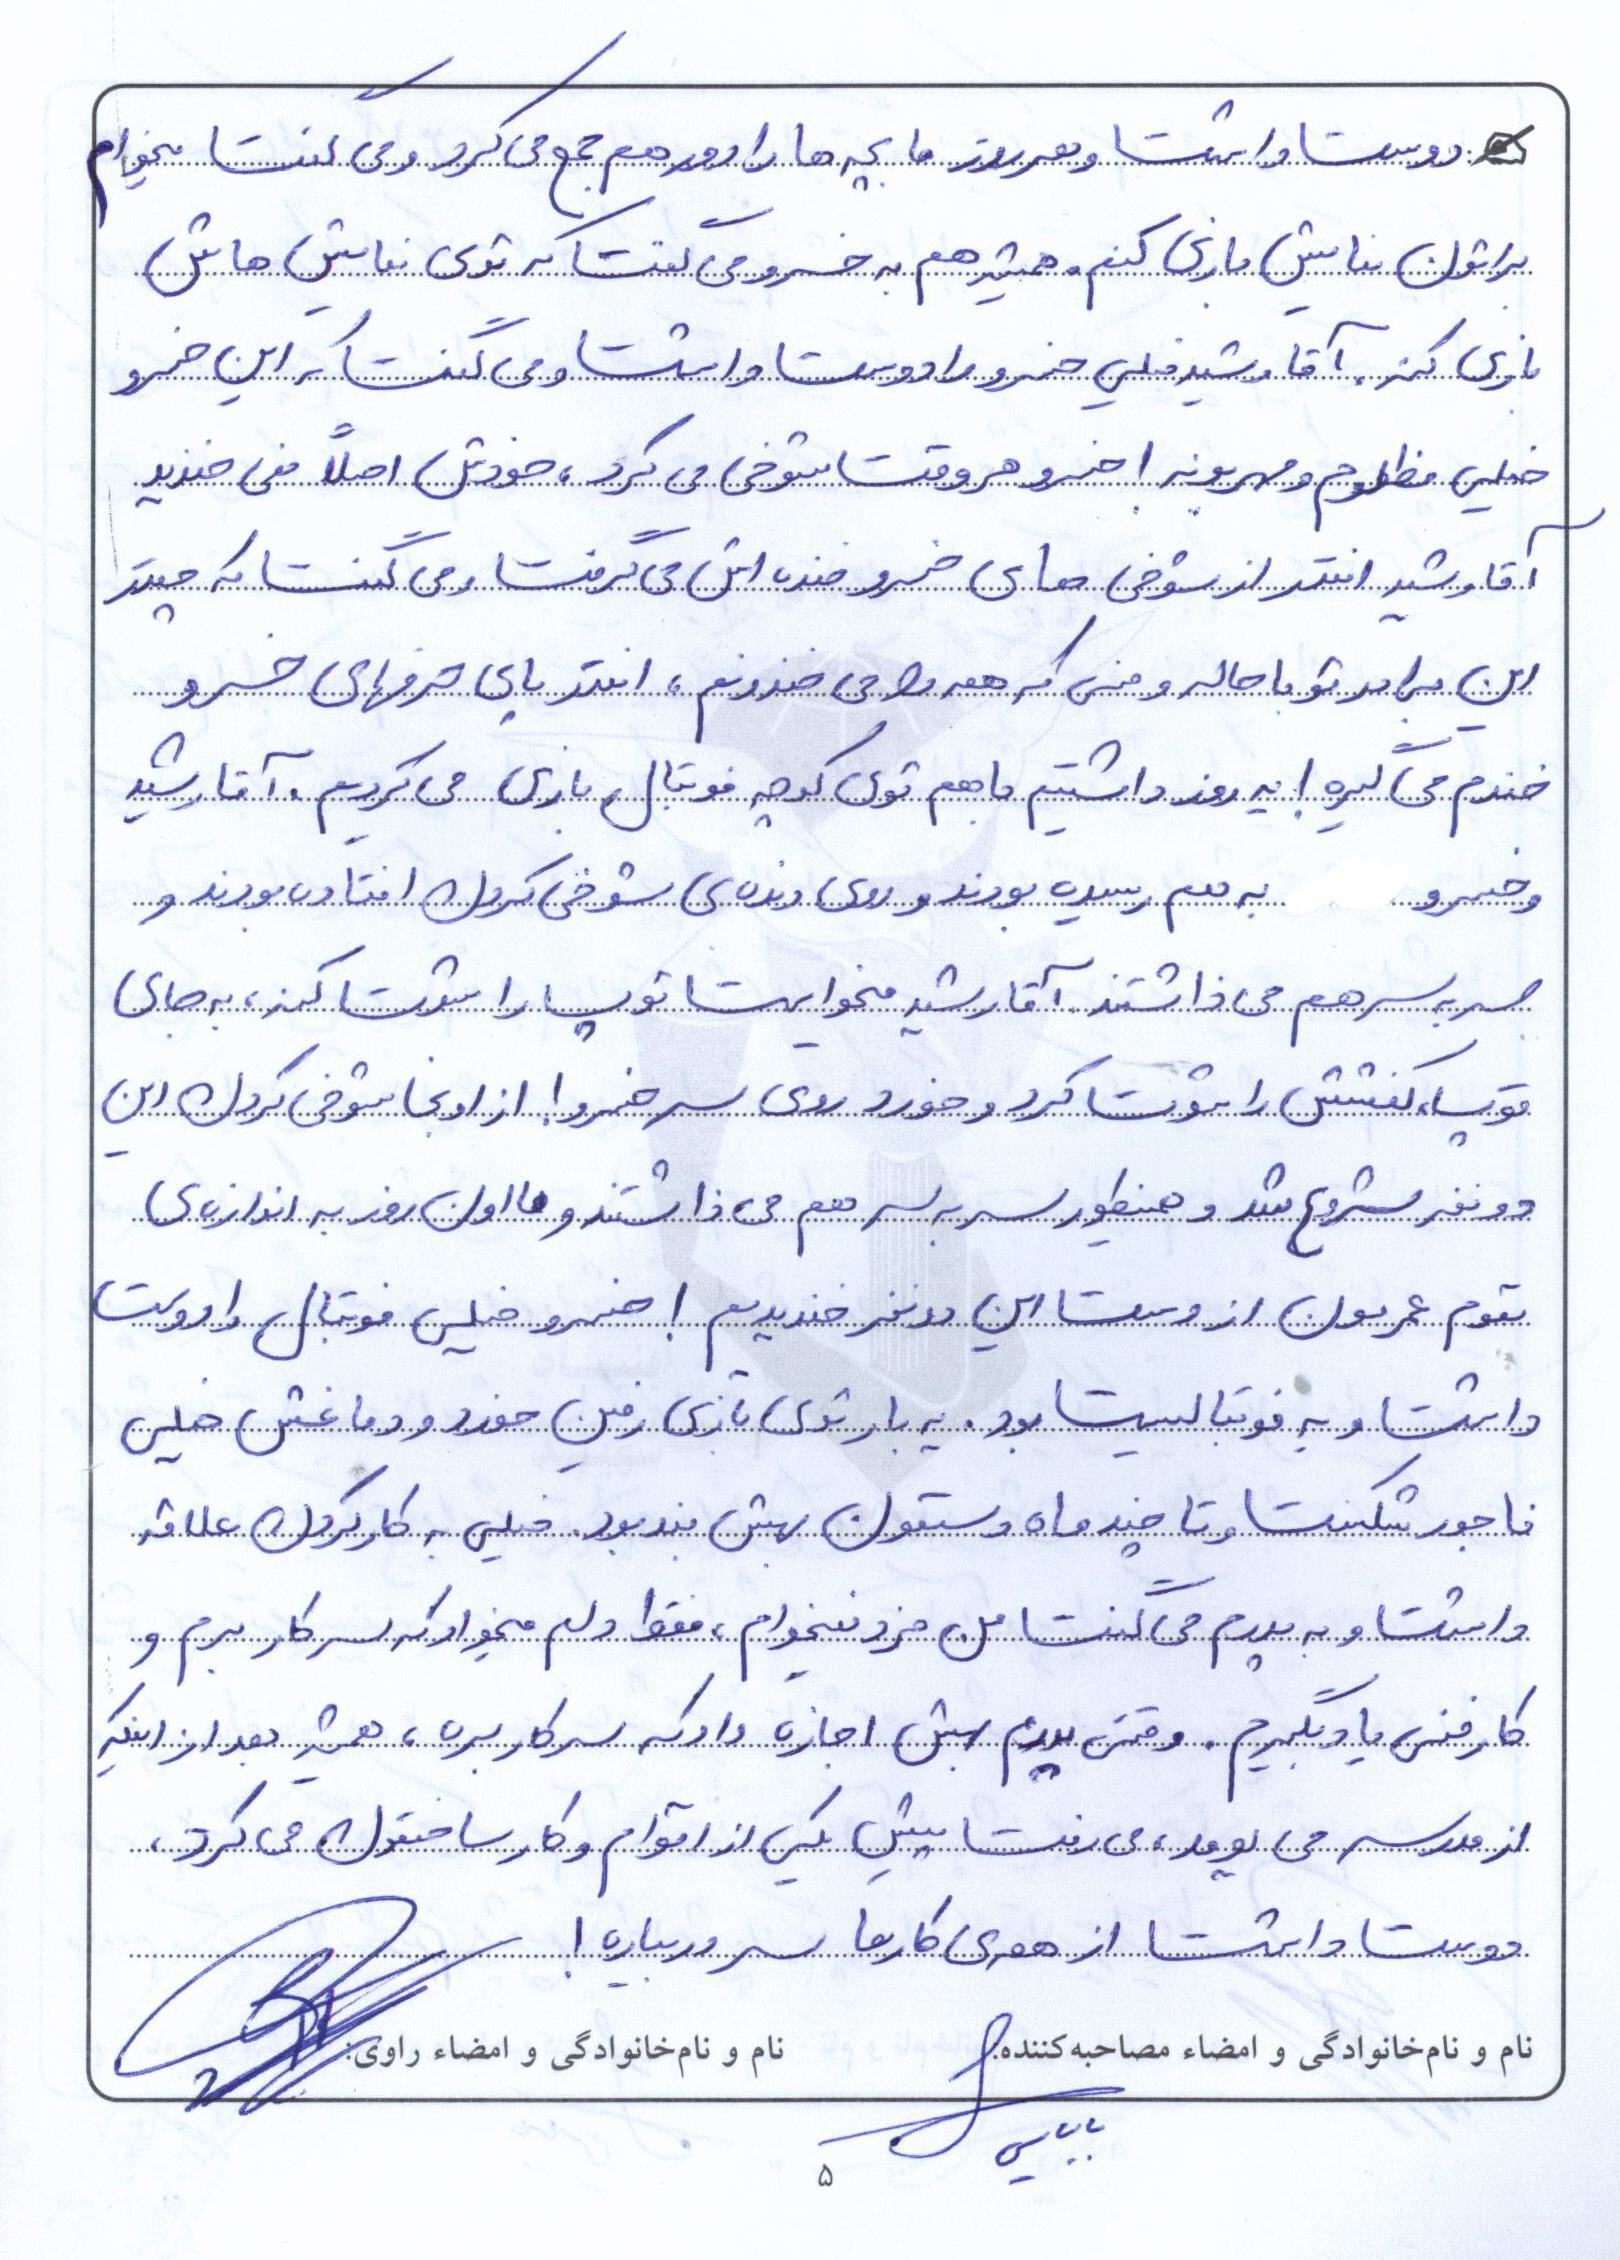 دوست داشت و هر روز ما بچه ها را دور هم جمع می کرد و می گفت میخوام
براتون نمایش بازی کنم. همیشه هم به خسرو می گفت که توی نمایش هاش
بازی کنه. آقا رشید خیلی خسرو را دوست داشت و می گفت که این خسرو
خیلی مظلوم و مهربونه! خسرو هر وقت شوخی می کرد، خودش اصلاً نمی خندید
آقا رشید انقدر از شوخی های خسرو خنده اش می گرفت و می گفت که چقدر
این برادر تو با حاله و منی که همه را می خندونم، انقدر پای حرفهای خسرو
خندم می گیره! یه روز داشتیم با هم توی کوچه فوتبال بازی می کردیم. آقا رشید
و خسرو به هم رسیده بودند و روی دنده ی شوخی کردن افتاده بودند و
سر به سر هم می ذاشتند. آقا رشید میخواست توپ را شوت کنه، به جای
توپ، کفشش را شوت کرد و خورد روی سر خسرو! از اونجا شوخی کردن این
دو نفر شروع شد و همینطور سر به سر هم می ذاشتند و ما اون روز به اندازه ی
تموم عمرمون از دست این دو نفر خندیدیم! خسرو خیلی فوتبال را دوست
داشت و یه فوتبالیست بود. یه بار توی بازی زمین خورد و دماغش خیلی
ناجور شکست و تا چند ماه دستمون بهش بند بود. خیلی به کار کردن علاقه
داشت و به پدرم می گفت من مزد نمیخوام، فقط دلم میخواد که سر کار برم و
کار فنی یاد بگیرم. وقتی پدرم بهش اجازه داد که سر کار بره، همیشه بعد از اینکه
از مدرسه می یومد، می رفت پیش یکی از اقوام و کار ساختمون می کرد،
دوست داشت از همه ی کارها سر در بیاره!
نام و نام‌خانوادگی و امضاء مصاحبه‌کننده: نام و نام‌خانوادگی و امضاء راوی:
بابایی
۵